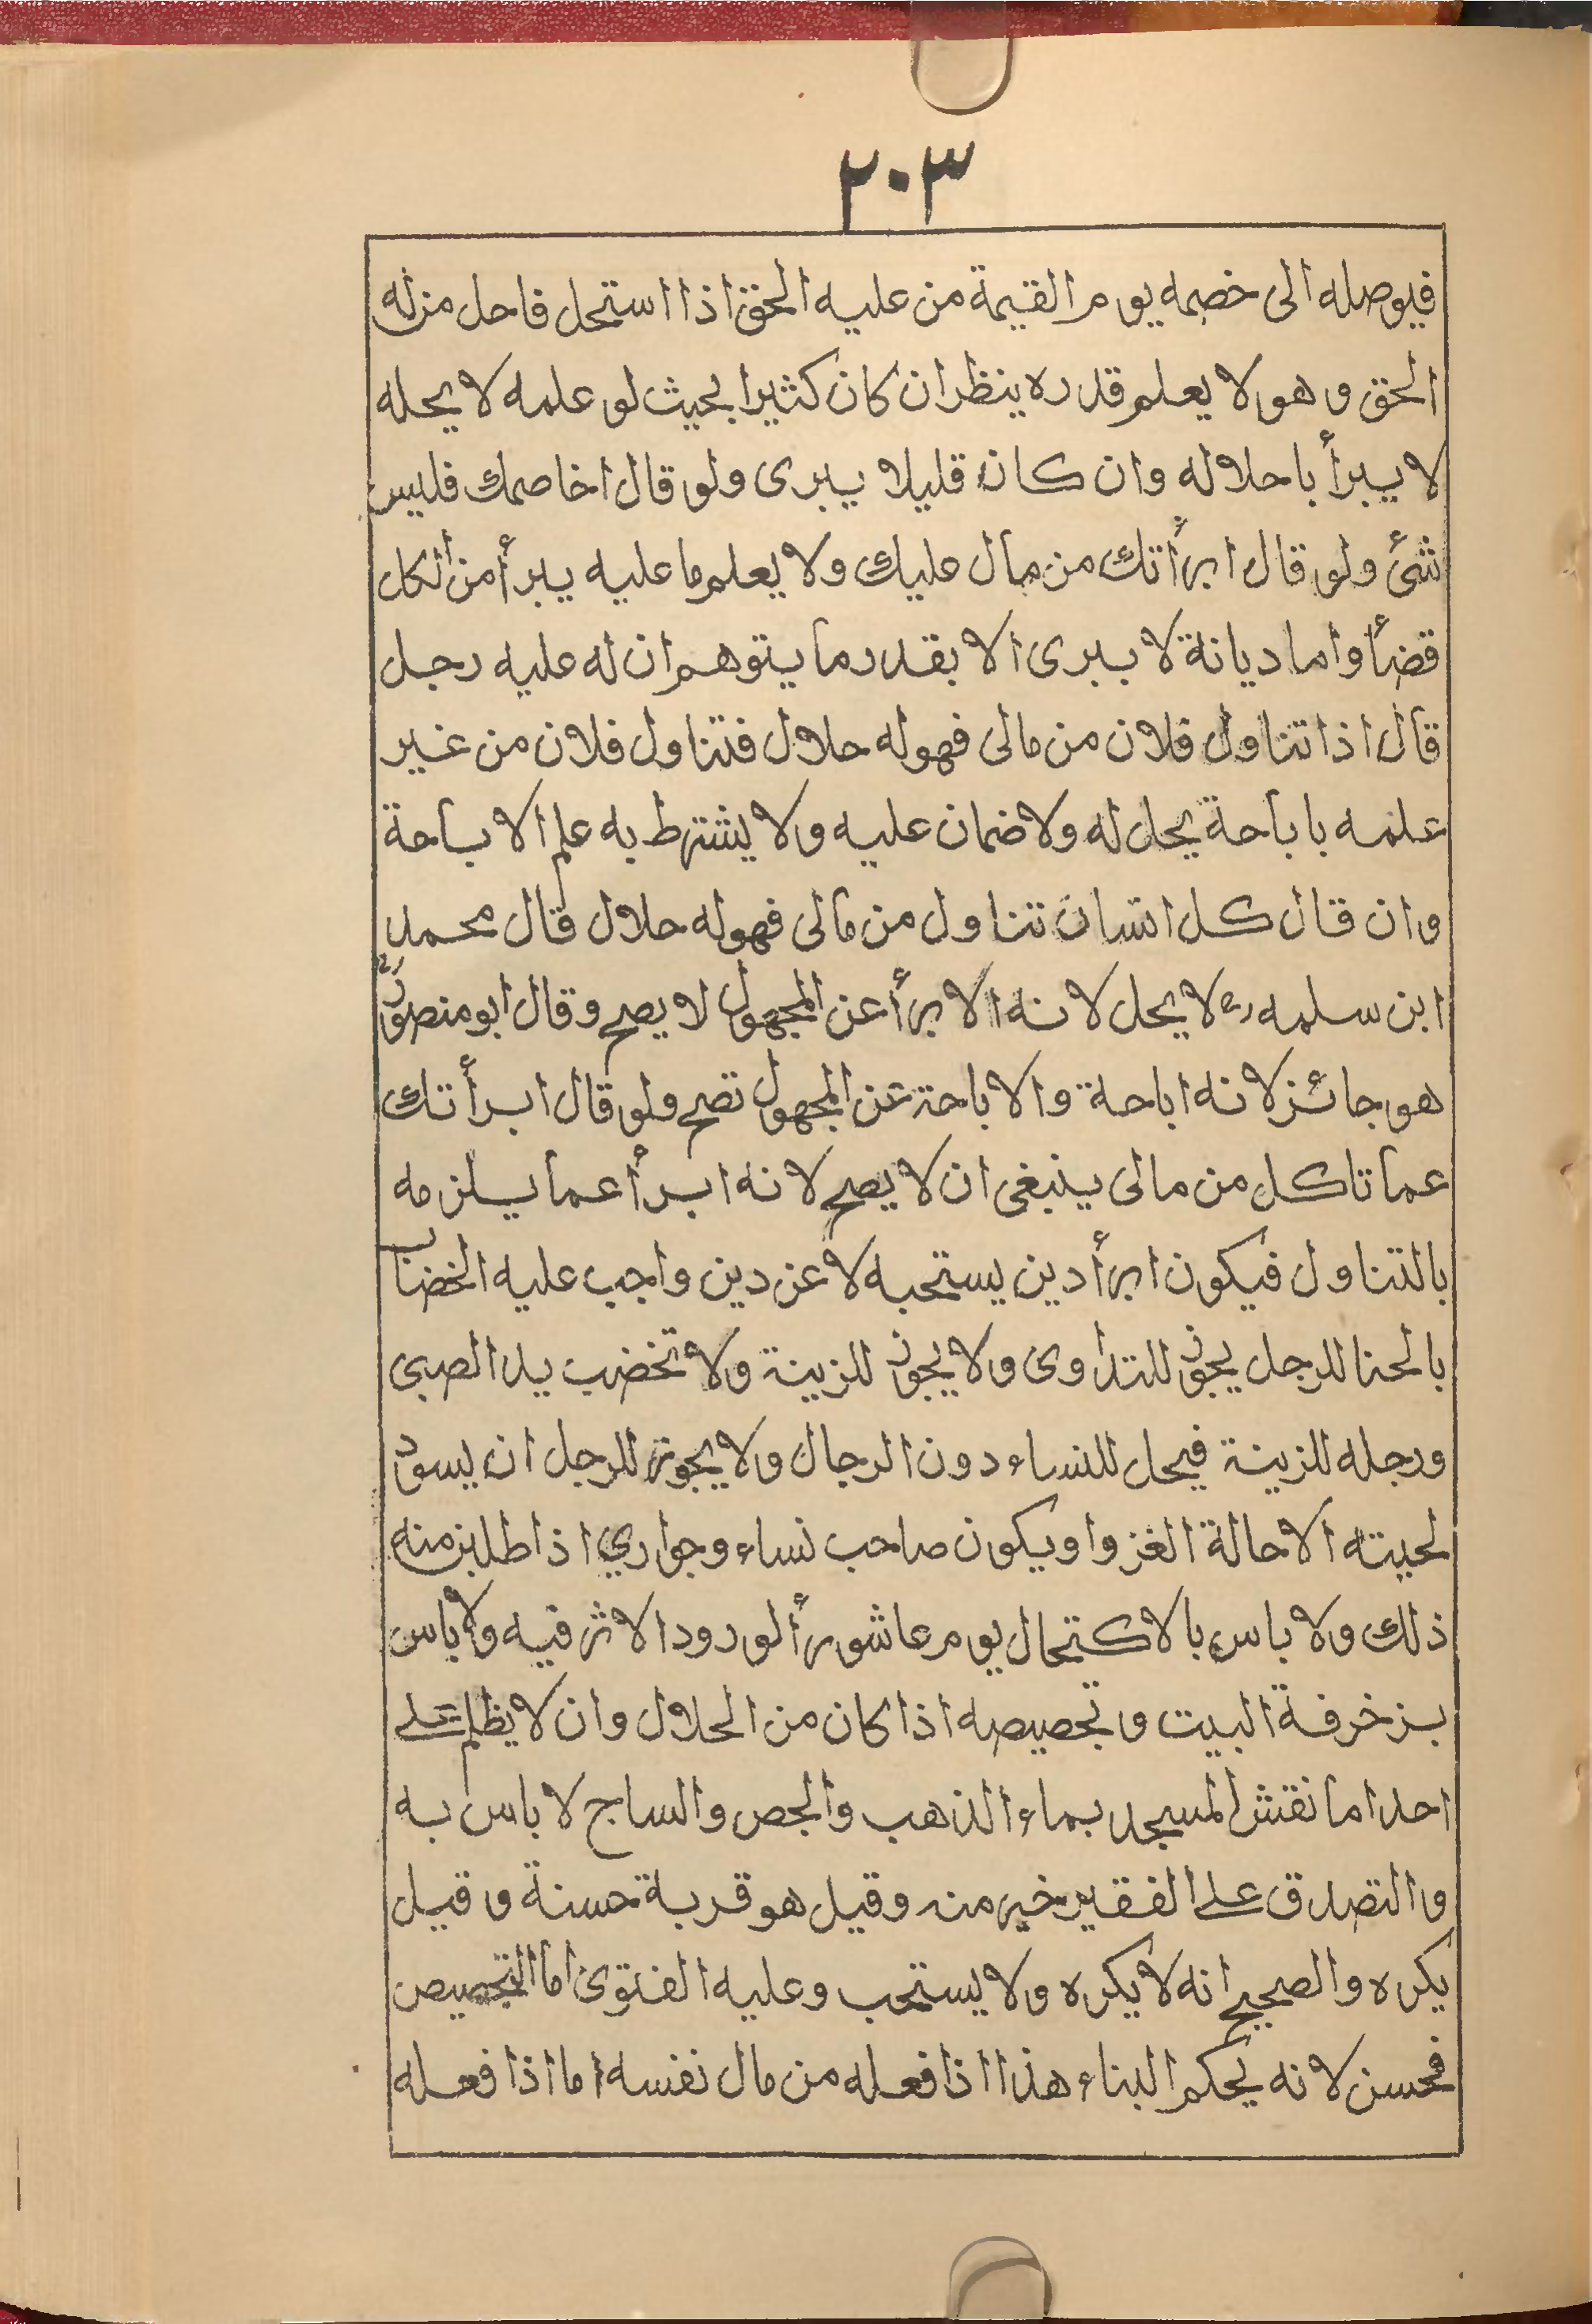 ٢٠٣
فيوصله الى خصمه يوم القيمة من عليه الحق اذا استحل فاحل من له
الحق وهو لا يعلم قدره ينظر ان كان كثيرا بحيث لو علمه لا يحله
لا يبرأ باحلاله وان كان قليلا يبرى ولو قال اخاصمك فليس
شئ ولو قال ابرأتك من مال عليك ولا يعلم ما عليه يبرأ من الكل
قضأ واما ديانة لا يبرى الا بقدر ما يتوهم ان له عليه رجل
قال اذا تناول فلان من مالى فهو له حلال فتناول فلان من غير
علمه باباحة يحل له ولا ضمان عليه ولا يشترط به علم الاباحة
وان قال كل انسان تناول من مالى فهو له حلال قال محمد
ابن سلمه رح لا يحل لانه الابرأ عن المجهول لا يصح وقال ابو منصور
هو جائز لانه اباحة والاباحة عن المجهول تصح ولو قال ابرأتك
عما تاكل من مالى ينبغى ان لا يصح لانه ابرأ عما يلزمه
بالتناول فيكون ابرأ دين يستحبه لا عن دين واجب عليه الخضاب
بالحنا للرجل يجوز للتداوى ولا يجوز للزينة ولا تخضب يد الصبى
ورجله للزينة فيحل للنساء دون الرجال ولا يجوز للرجل ان يسود
لحيته الا حالة الغزو او يكون صاحب نساء وجواري اذا طلبن منه
ذلك ولا باس بالاكتحال يوم عاشورأ لورود الاثر فيه ولا باس
بزخرفة البيت وتجصيصه اذا كان من الحلال وان لا يظلم على
احد اما نقش المسجد بماء الذهب والجص والساج لا باس به
والتصدق على الفقير خير منه وقيل هو قربة حسنة وقيل
يكره والصحيح انه لا يكره ولا يستحب وعليه الفتوى اما التجصيص
فحسن لانه يحكم البناء هذا اذا فعله من مال نفسه اما اذا فعله